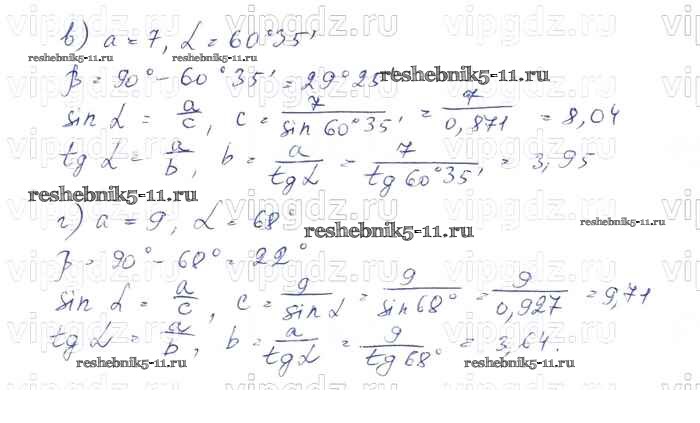 в) a = 7, α = 60°35'
reshebnik5-11.ru reshebnik5-11.ru
β = 90° - 60°35' = 29°25' reshebnik5-11.ru
sin α = a/c, c = 7/sin 60°35' = 7/0,871 = 8,04
tg α = a/b, b = a/tg α = 7/tg 60°35' = 3,95
reshebnik5-11.ru
г) a = 9, α = 68° reshebnik5-11.ru reshebnik5-11.ru
β = 90° - 68° = 22°
sin α = a/c, c = 9/sin α = 9/sin 68° = 9/0,927 = 9,71
tg α = a/b, b = a/tg α = 9/tg 68° = 3,64.
reshebnik5-11.ru reshebnik5-11.ru